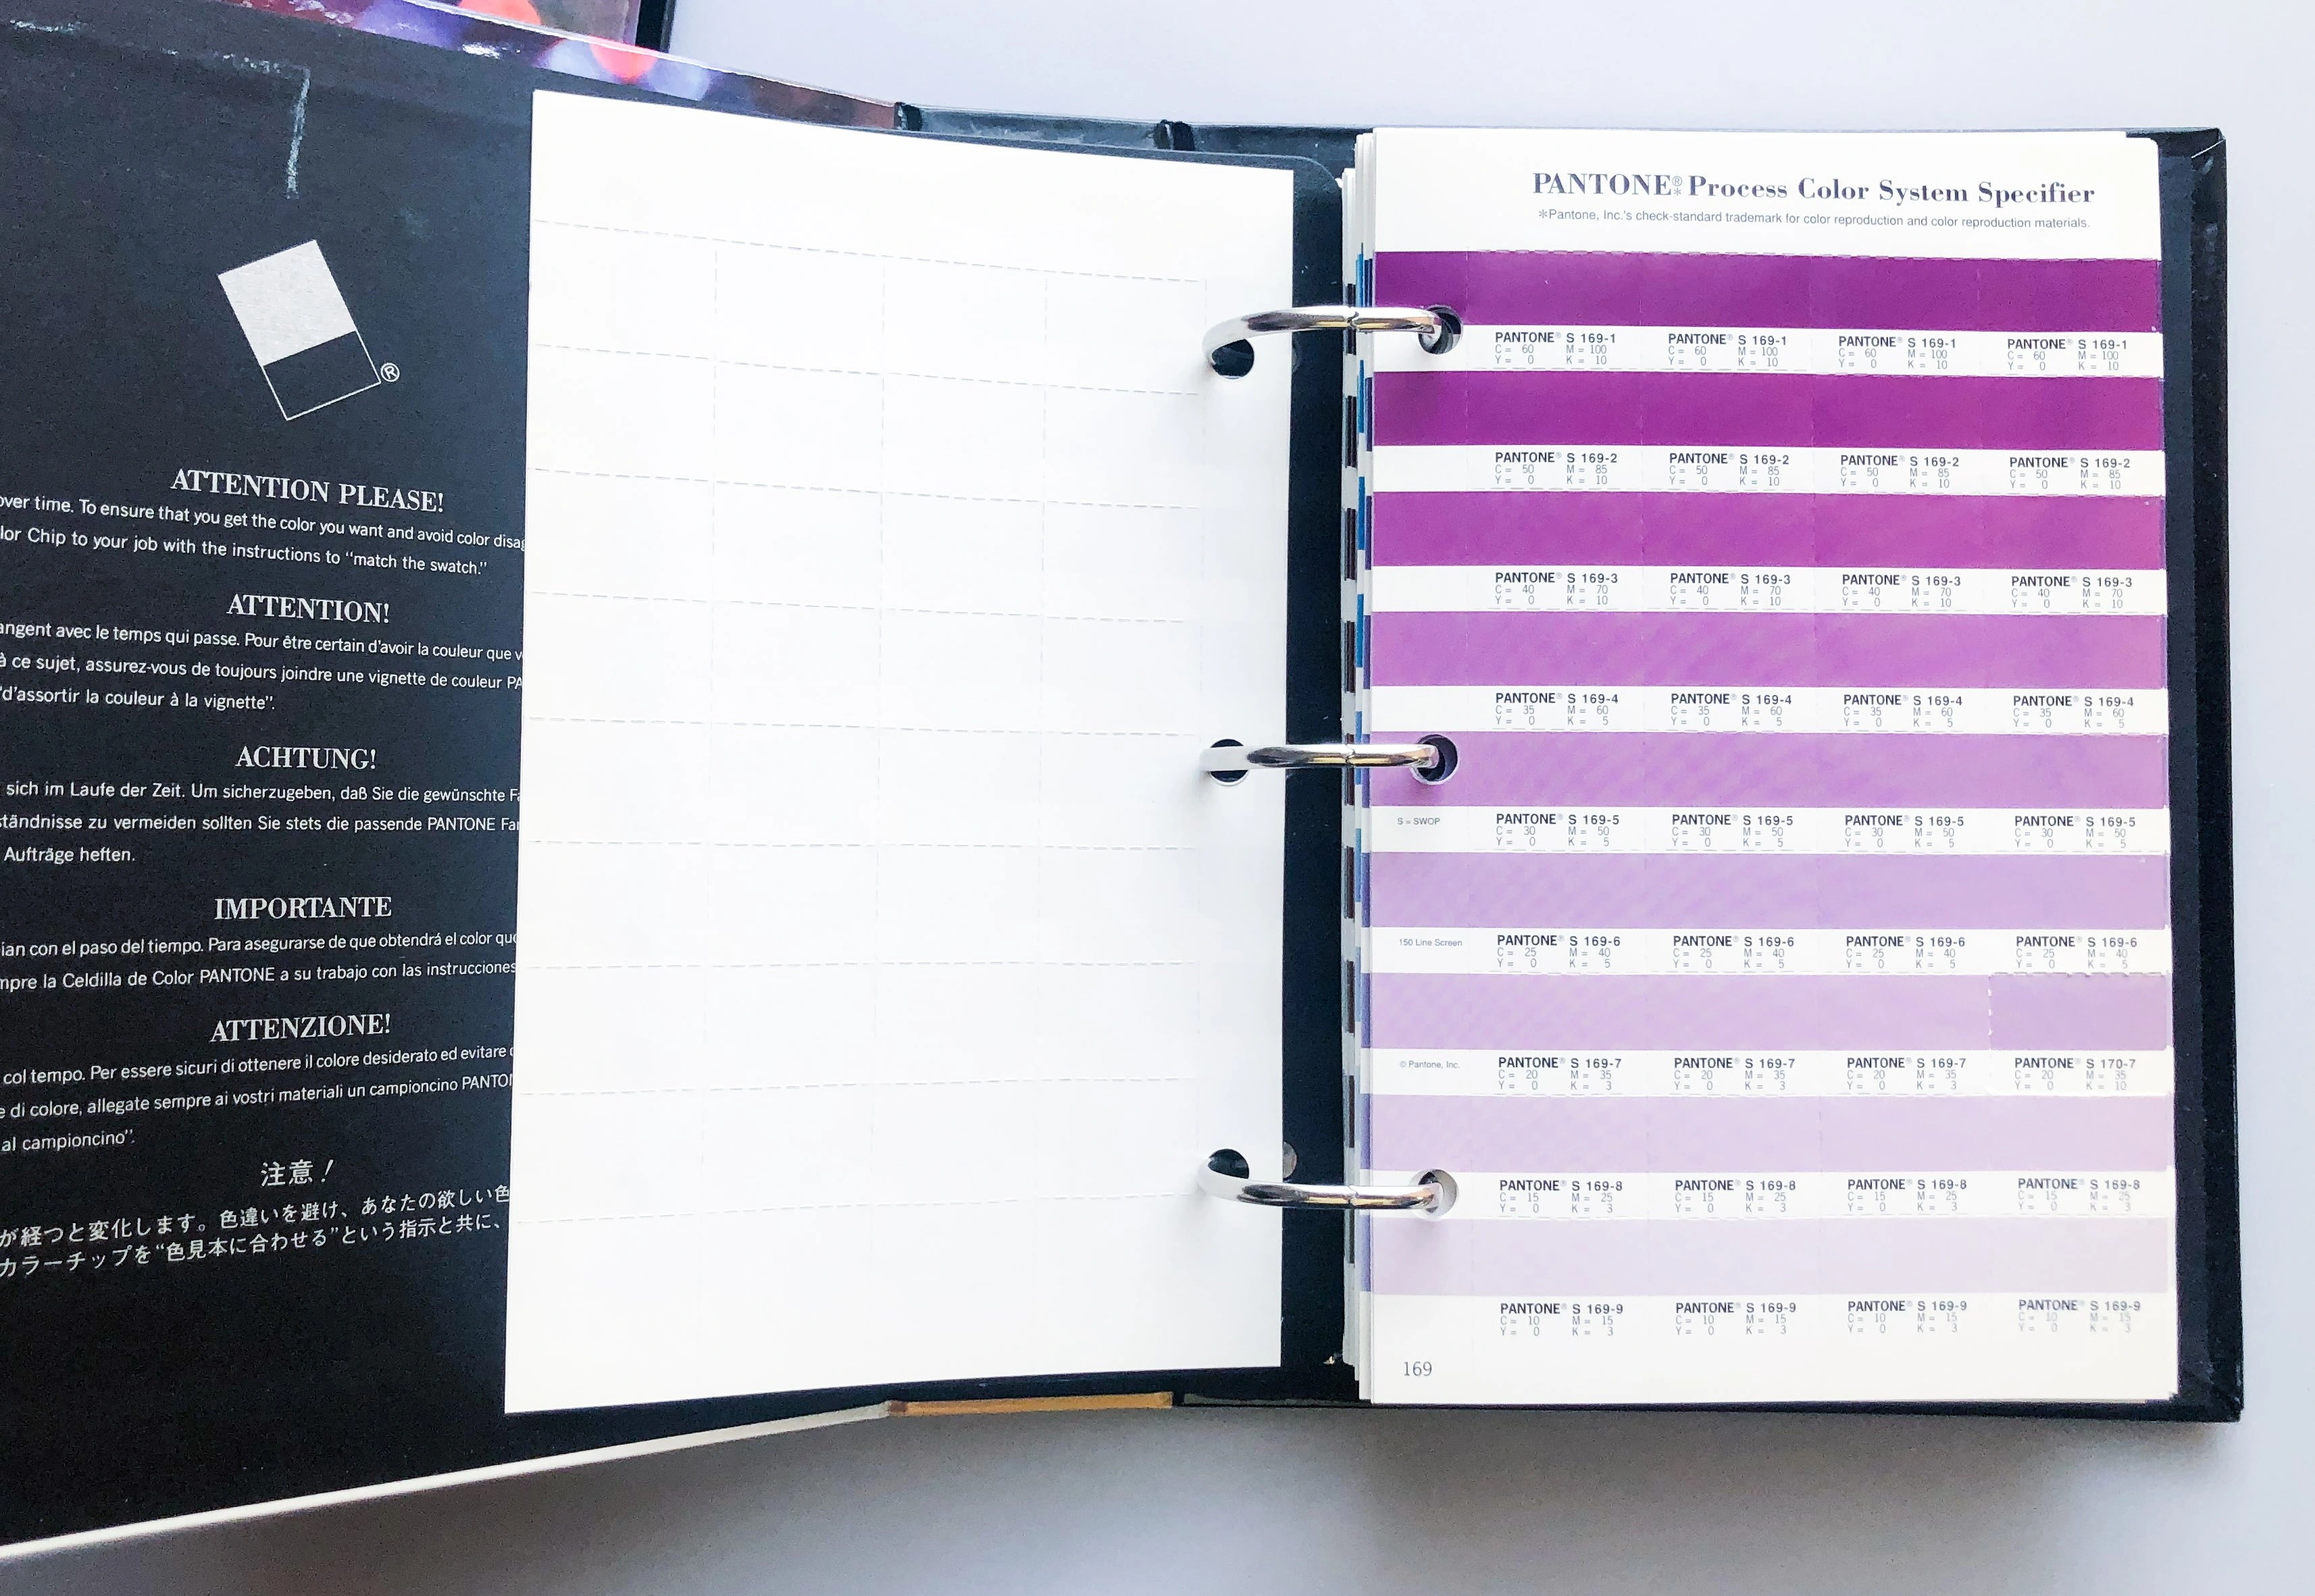 ®
ATTENTION PLEASE!
over time. To ensure that you get the color you want and avoid color
lor Chip to your job with the instructions to "match the swatch."
ATTENTION!
angent avec le temps qui passe. Pour être certain d'avoir la couleur que
à ce sujet, assurez-vous de toujours joindre une vignette de couleur
"d'assortir la couleur à la vignette".
ACHTUNG!
sich im Laufe der Zeit. Um sicherzugeben, daß Sie die gewünschte
ständnisse zu vermeiden sollten Sie stets die passende PANTONE
Aufträge heften.
IMPORTANTE
ian con el paso del tiempo. Para asegurarse de que obtendrá el color que
mpre la Celdilla de Color PANTONE a su trabajo con las instrucciones
ATTENZIONE!
col tempo. Per essere sicuri di ottenere il colore desiderato ed evitare
e di colore, allegate sempre ai vostri materiali un campioncino
al campioncino".
注意！
が経つと変化します。色違いを避け、あなたの欲しい色
カラーチップを"色見本に合わせる"という指示と共に、
PANTONE®* Process Color System Specifier
*Pantone, Inc.'s check-standard trademark for color reproduction and color reproduction materials.
PANTONE® S 169-1 PANTONE® S 169-1 PANTONE® S 169-1 PANTONE® S 169-1
C = 60 M = 100 C = 60 M = 100 C = 60 M = 100 C = 60 M = 100
Y = 0 K = 10 Y = 0 K = 10 Y = 0 K = 10 Y = 0 K = 10
PANTONE® S 169-2 PANTONE® S 169-2 PANTONE® S 169-2 PANTONE® S 169-2
C = 50 M = 85 C = 50 M = 85 C = 50 M = 85 C = 50 M = 85
Y = 0 K = 10 Y = 0 K = 10 Y = 0 K = 10 Y = 0 K = 10
PANTONE® S 169-3 PANTONE® S 169-3 PANTONE® S 169-3 PANTONE® S 169-3
C = 40 M = 70 C = 40 M = 70 C = 40 M = 70 C = 40 M = 70
Y = 0 K = 10 Y = 0 K = 10 Y = 0 K = 10 Y = 0 K = 10
PANTONE® S 169-4 PANTONE® S 169-4 PANTONE® S 169-4 PANTONE® S 169-4
C = 35 M = 60 C = 35 M = 60 C = 35 M = 60 C = 35 M = 60
Y = 0 K = 5 Y = 0 K = 5 Y = 0 K = 5 Y = 0 K = 5
S = SWOP PANTONE® S 169-5 PANTONE® S 169-5 PANTONE® S 169-5 PANTONE® S 169-5
C = 30 M = 50 C = 30 M = 50 C = 30 M = 50 C = 30 M = 50
Y = 0 K = 5 Y = 0 K = 5 Y = 0 K = 5 Y = 0 K = 5
150 Line Screen PANTONE® S 169-6 PANTONE® S 169-6 PANTONE® S 169-6 PANTONE® S 169-6
C = 25 M = 40 C = 25 M = 40 C = 25 M = 40 C = 25 M = 40
Y = 0 K = 5 Y = 0 K = 5 Y = 0 K = 5 Y = 0 K = 5
© Pantone, Inc. PANTONE® S 169-7 PANTONE® S 169-7 PANTONE® S 169-7 PANTONE® S 170-7
C = 20 M = 35 C = 20 M = 35 C = 20 M = 35 C = 20 M = 35
Y = 0 K = 3 Y = 0 K = 3 Y = 0 K = 3 Y = 0 K = 10
PANTONE® S 169-8 PANTONE® S 169-8 PANTONE® S 169-8 PANTONE® S 169-8
C = 15 M = 25 C = 15 M = 25 C = 15 M = 25 C = 15 M = 25
Y = 0 K = 3 Y = 0 K = 3 Y = 0 K = 3 Y = 0 K = 3
PANTONE® S 169-9 PANTONE® S 169-9 PANTONE® S 169-9 PANTONE® S 169-9
C = 10 M = 15 C = 10 M = 15 C = 10 M = 15 C = 10 M = 15
Y = 0 K = 3 Y = 0 K = 3 Y = 0 K = 3 Y = 0 K = 3
169